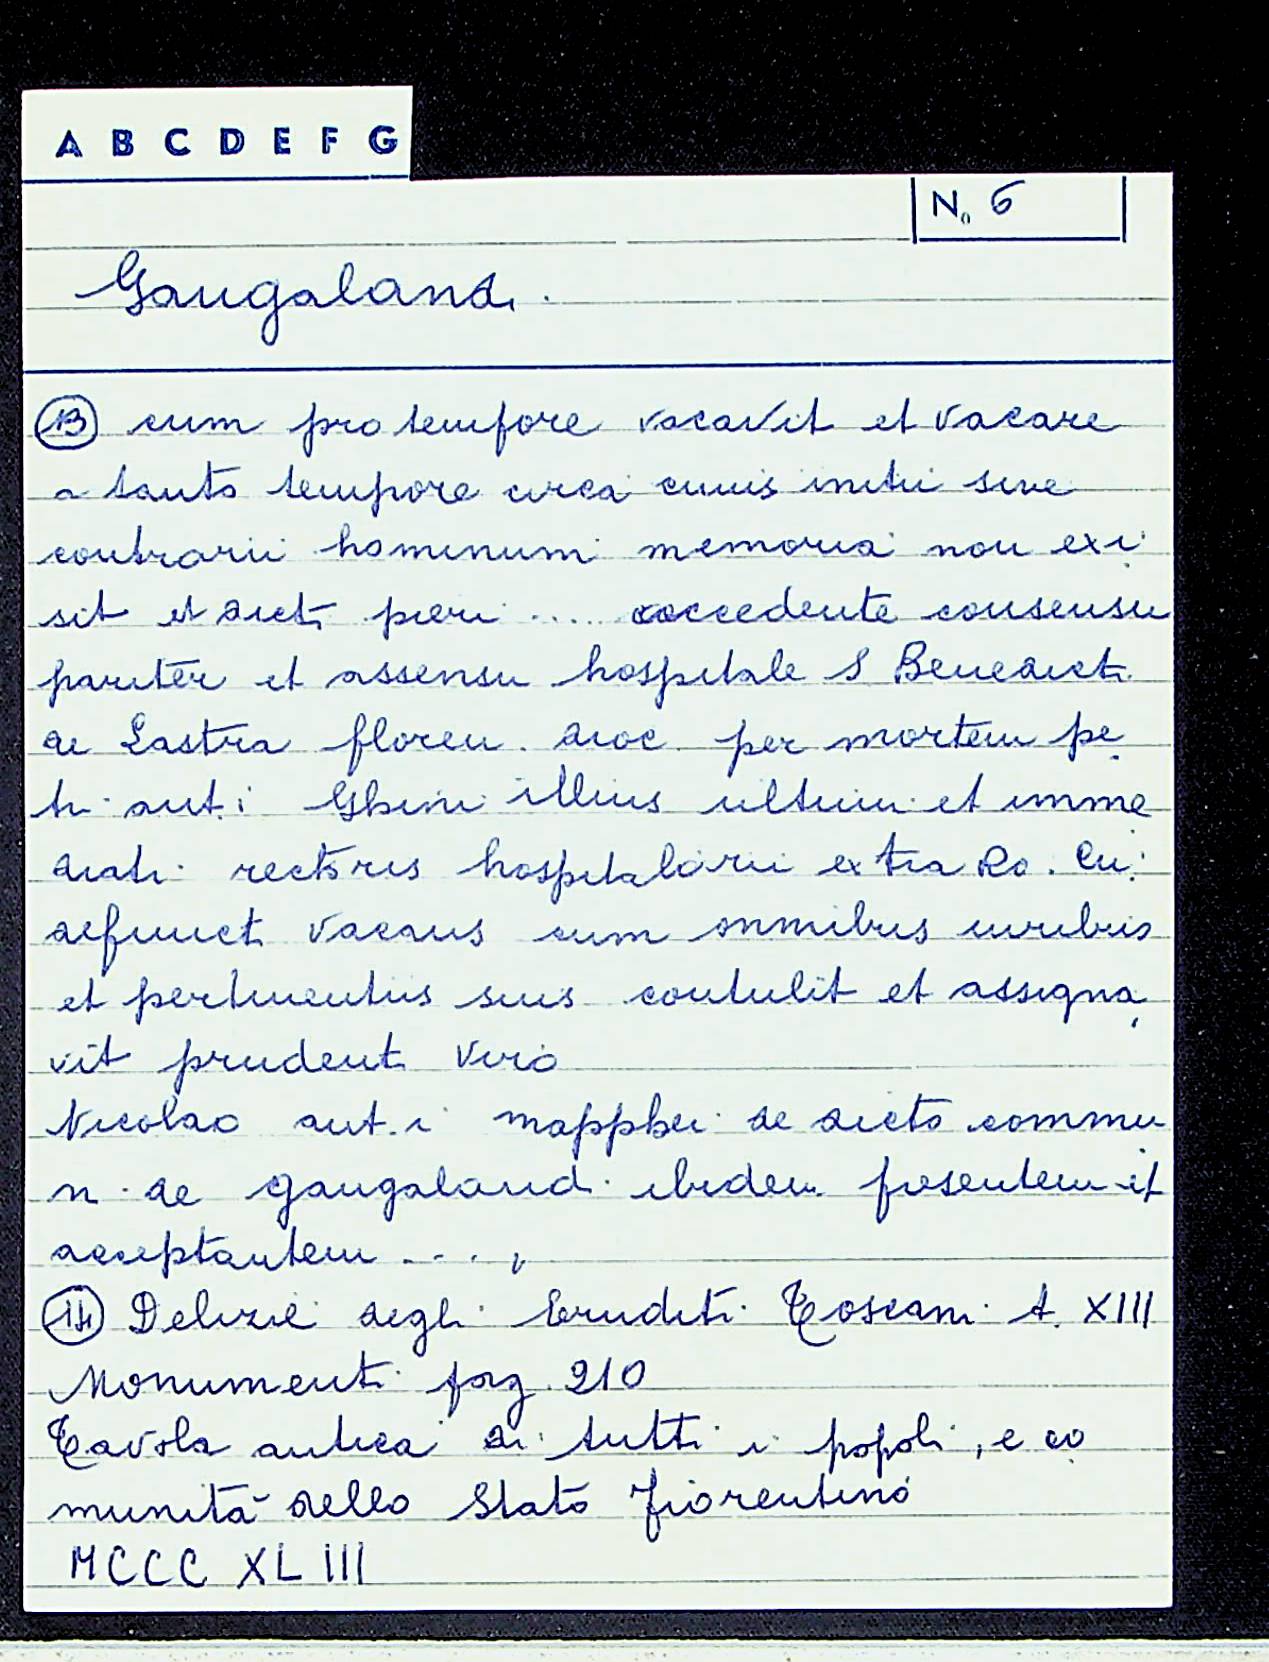 A B C D E F G
N. 6
Gangalandi
13 cum pro tempore vacavit et vacare
a tanto tempore circa cuius initii sive
contrarii hominum memoria non exi
sit et dicti pieri .... accedente consensu
pariter et assensu hospitale S Benedicti
de Lastra floren. dioc per mortem pe
tri ant.i Ghini illius ultimi et imme
diati rectoris hospitalarii extra Ro. Cu.
defuncti vacans cum omnibus iuribus
et pertinentiis suis contulit et assigna
vit prudenti viro
Nicolao ant.i mapphei de dicto commu
ni de gangalandi ibidem presentem et
acceptantem ....
14 Delizie degli Eruditi Toscani t. XIII
Monumenti pag. 210
Tavola antica di tutti i popoli, e co
munità dello Stato Fiorentino
MCCC XLIII